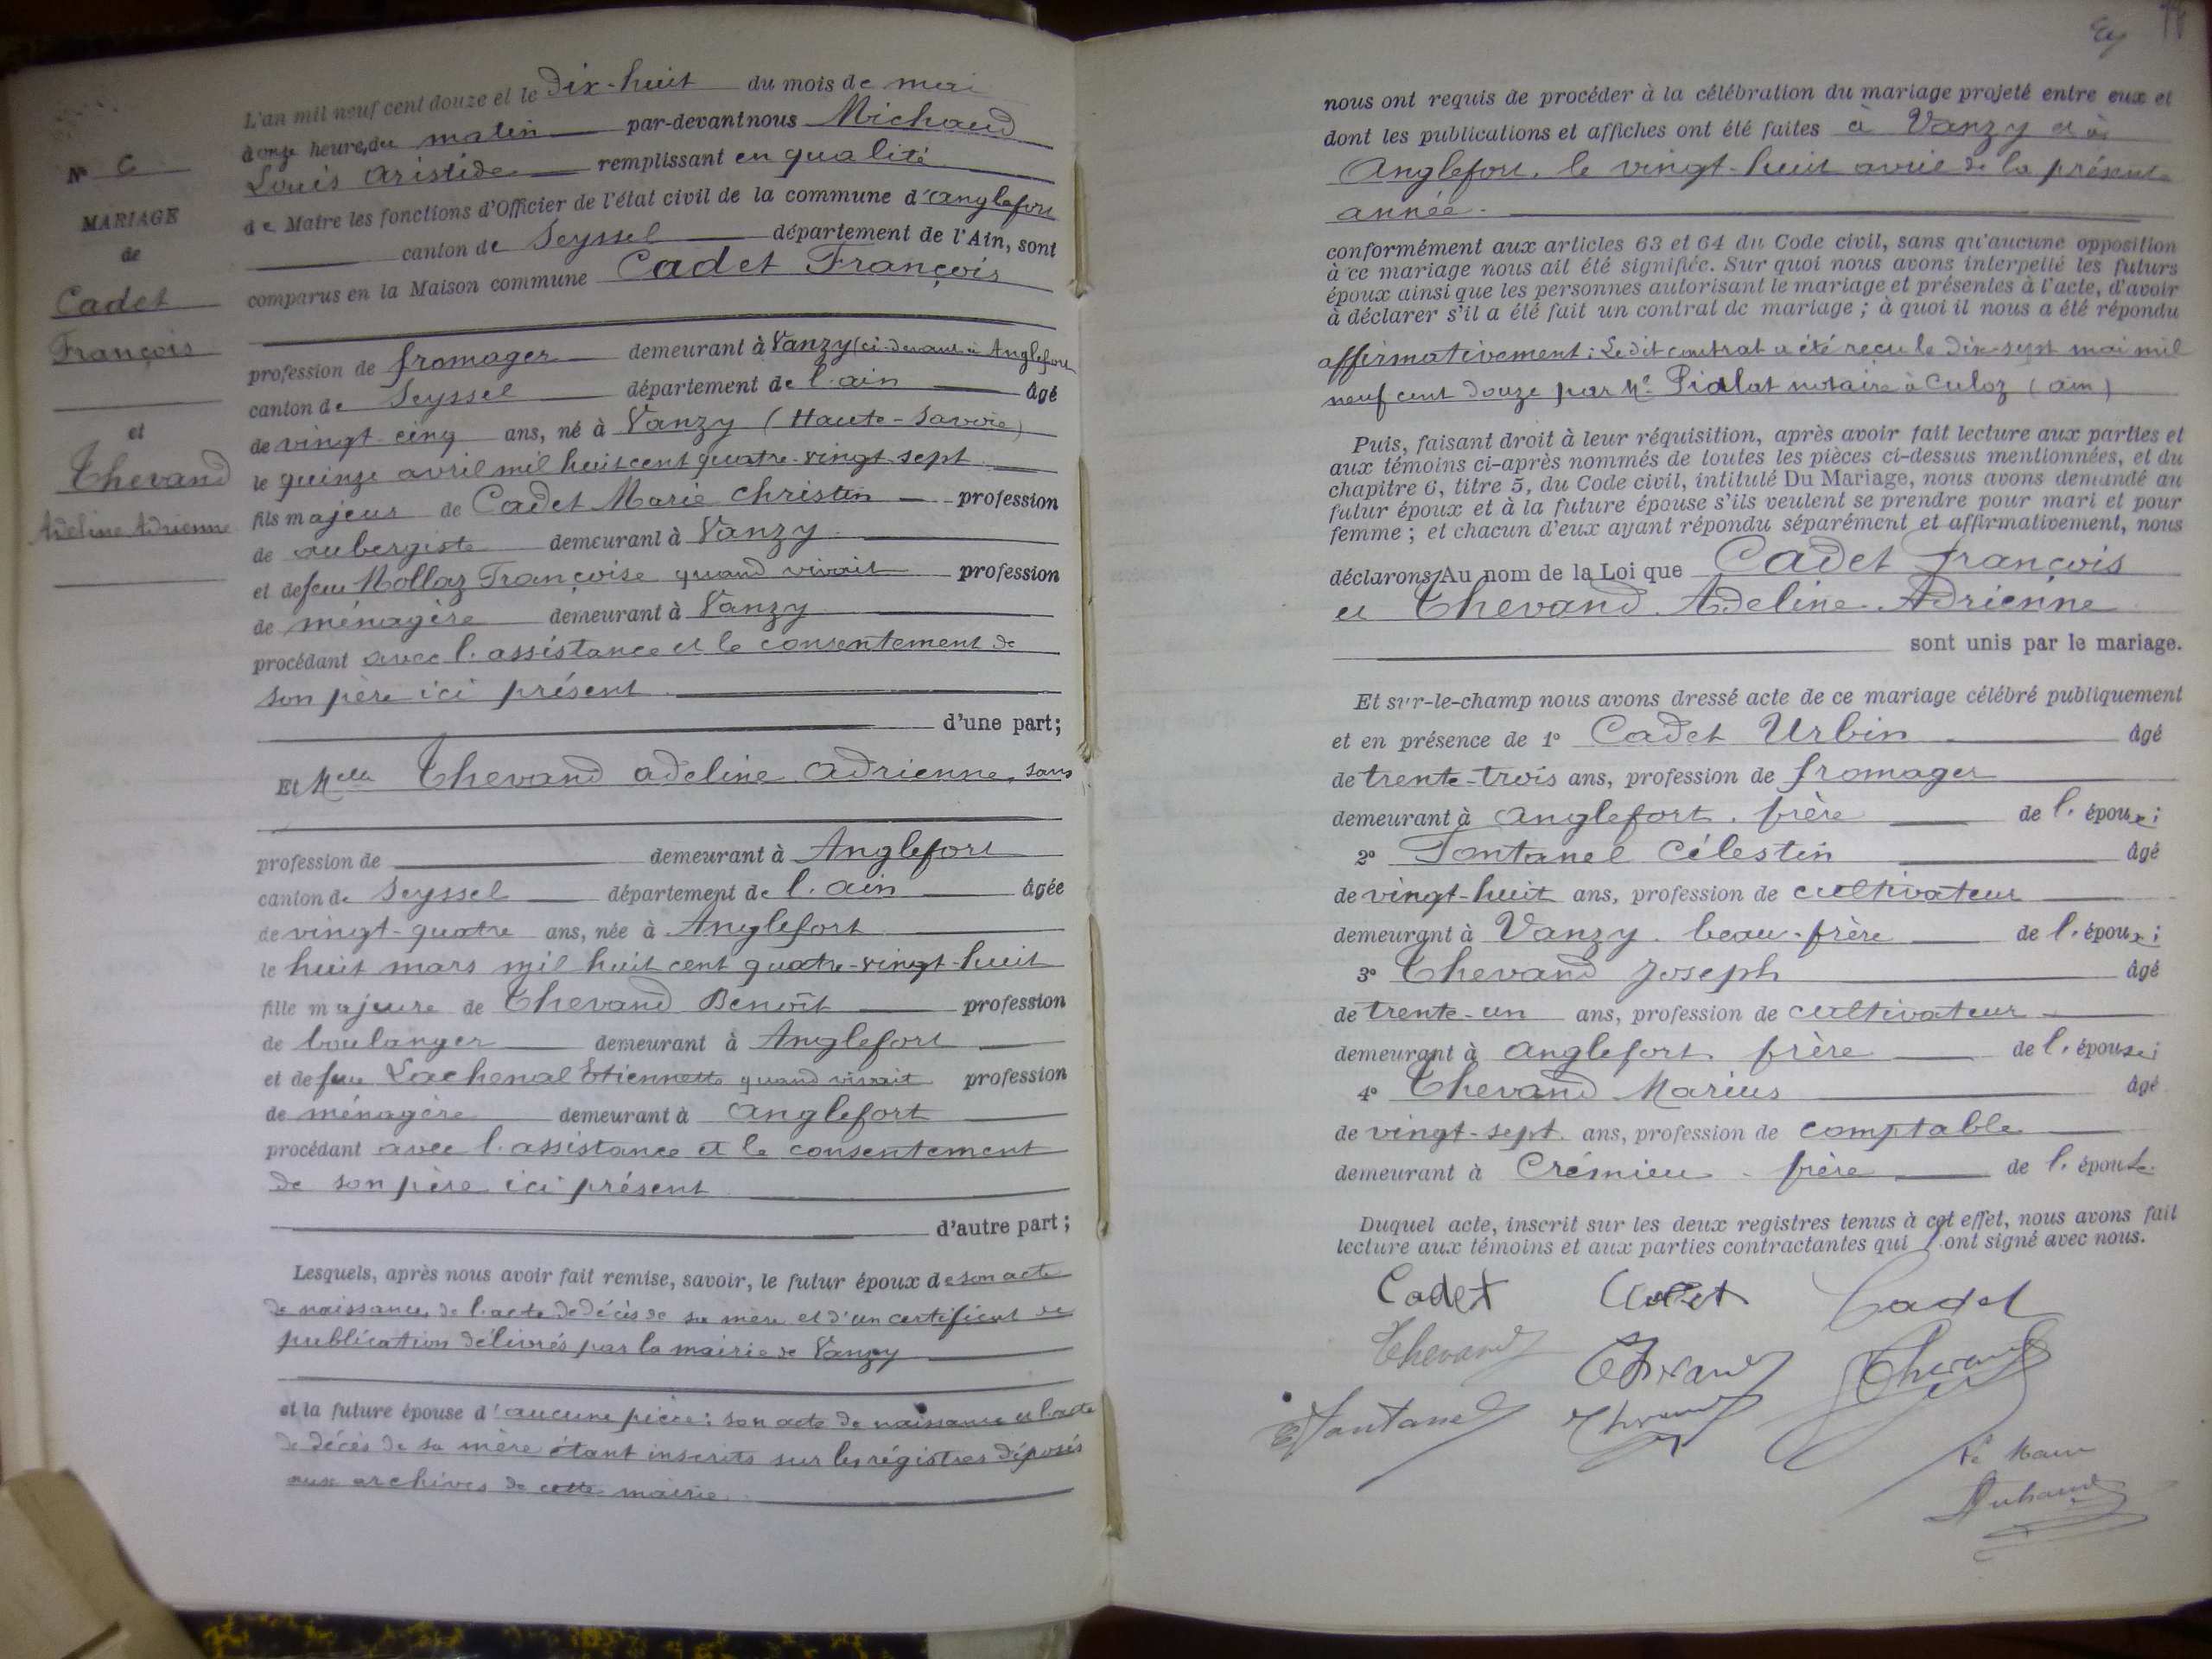 N° 6
MARIAGE
de
Cadet
François
et
Thevand
Adeline Adrienne
L'an mil neuf cent douze et le dix-huit du mois de mai
à onze heures du matin par-devant nous Michaud
Louis Aristide remplissant en qualité
de Maire les fonctions d'Officier de l'état civil de la commune d'Anglefort
canton de Seyssel département de l'Ain, sont
comparus en la Maison commune Cadet François
profession de fromager demeurant à Vanzy (ci-devant à Anglefort
canton de Seyssel département de l'ain âgé
de vingt-cinq ans, né à Vanzy (Haute-Savoie)
le quinze avril mil huit cent quatre-vingt-sept
fils majeur de Cadet Marie Christin profession
de aubergiste demeurant à Vanzy
et de feue Mollaz Françoise quand vivait profession
de ménagère demeurant à Vanzy
procédant avec l'assistance et le consentement de
son père ici présent
d'une part;
Et Melle Thevand adeline adrienne, sans
profession de demeurant à Anglefort
canton de Seyssel département de l'ain âgée
de vingt-quatre ans, née à Anglefort
le huit mars mil huit cent quatre-vingt-huit
fille majeure de Thevand Benoît profession
de boulanger demeurant à Anglefort
et de feue Lachenal Etiennette quand vivait profession
de ménagère demeurant à anglefort
procédant avec l'assistance et le consentement
de son père ici présent
d'autre part;
Lesquels, après nous avoir fait remise, savoir, le futur époux de son acte
de naissance, de l'acte de décès de sa mère et d'un certificat de
publication délivrés par la mairie de Vanzy
et la future épouse d'aucune pièce: son acte de naissance et l'acte
de décès de sa mère étant inscrits sur les régistres déposés
aux archives de cette mairie.
nous ont requis de procéder à la célébration du mariage projeté entre eux et
dont les publications et affiches ont été faites à Vanzy et à
Anglefort, le vingt-huit avril de la présente
année.
conformément aux articles 63 et 64 du Code civil, sans qu'aucune opposition
à ce mariage nous ait été signifiée. Sur quoi nous avons interpellé les futurs
époux ainsi que les personnes autorisant le mariage et présentes à l'acte, d'avoir
à déclarer s'il a été fait un contrat de mariage ; à quoi il nous a été répondu
affirmativement; Le dit contrat a été reçu le dix-sept mai mil
neuf cent douze par Me Pialat notaire à Culoz (ain)
Puis, faisant droit à leur réquisition, après avoir fait lecture aux parties et
aux témoins ci-après nommés de toutes les pièces ci-dessus mentionnées, et du
chapitre 6, titre 5, du Code civil, intitulé Du Mariage, nous avons demandé au
futur époux et à la future épouse s'ils veulent se prendre pour mari et pour
femme ; et chacun d'eux ayant répondu séparément et affirmativement, nous
déclarons Au nom de la Loi que Cadet François
et Thevand Adeline Adrienne
sont unis par le mariage.
Et sur-le-champ nous avons dressé acte de ce mariage célébré publiquement
et en présence de 1° Cadet Urbin âgé
de trente-trois ans, profession de fromager
demeurant à anglefort, frère de l'époux;
2° Fontanel Célestin âgé
de vingt-huit ans, profession de cultivateur
demeurant à Vanzy, beau-frère de l'époux;
3° Thevand Joseph âgé
de trente-un ans, profession de cultivateur
demeurant à anglefort, frère de l'épouse;
4° Thevand Marius âgé
de vingt-sept ans, profession de comptable
demeurant à Crémieu, frère de l'épouse.
Duquel acte, inscrit sur les deux registres tenus à cet effet, nous avons fait
lecture aux témoins et aux parties contractantes qui l'ont signé avec nous.
Cadet Cadet Cadet
Thevand Thevand Thevand
Fontanel Thevand
Le Maire